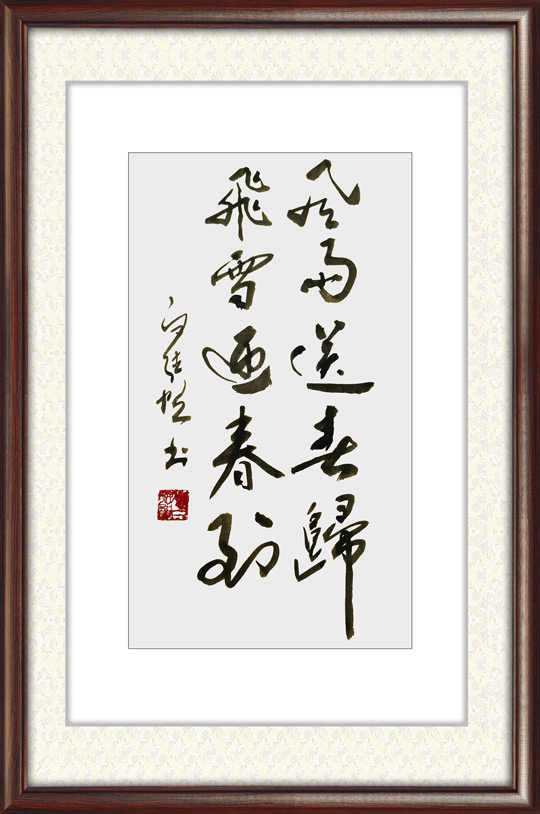 風雨送春歸
飛雪迎春到
書